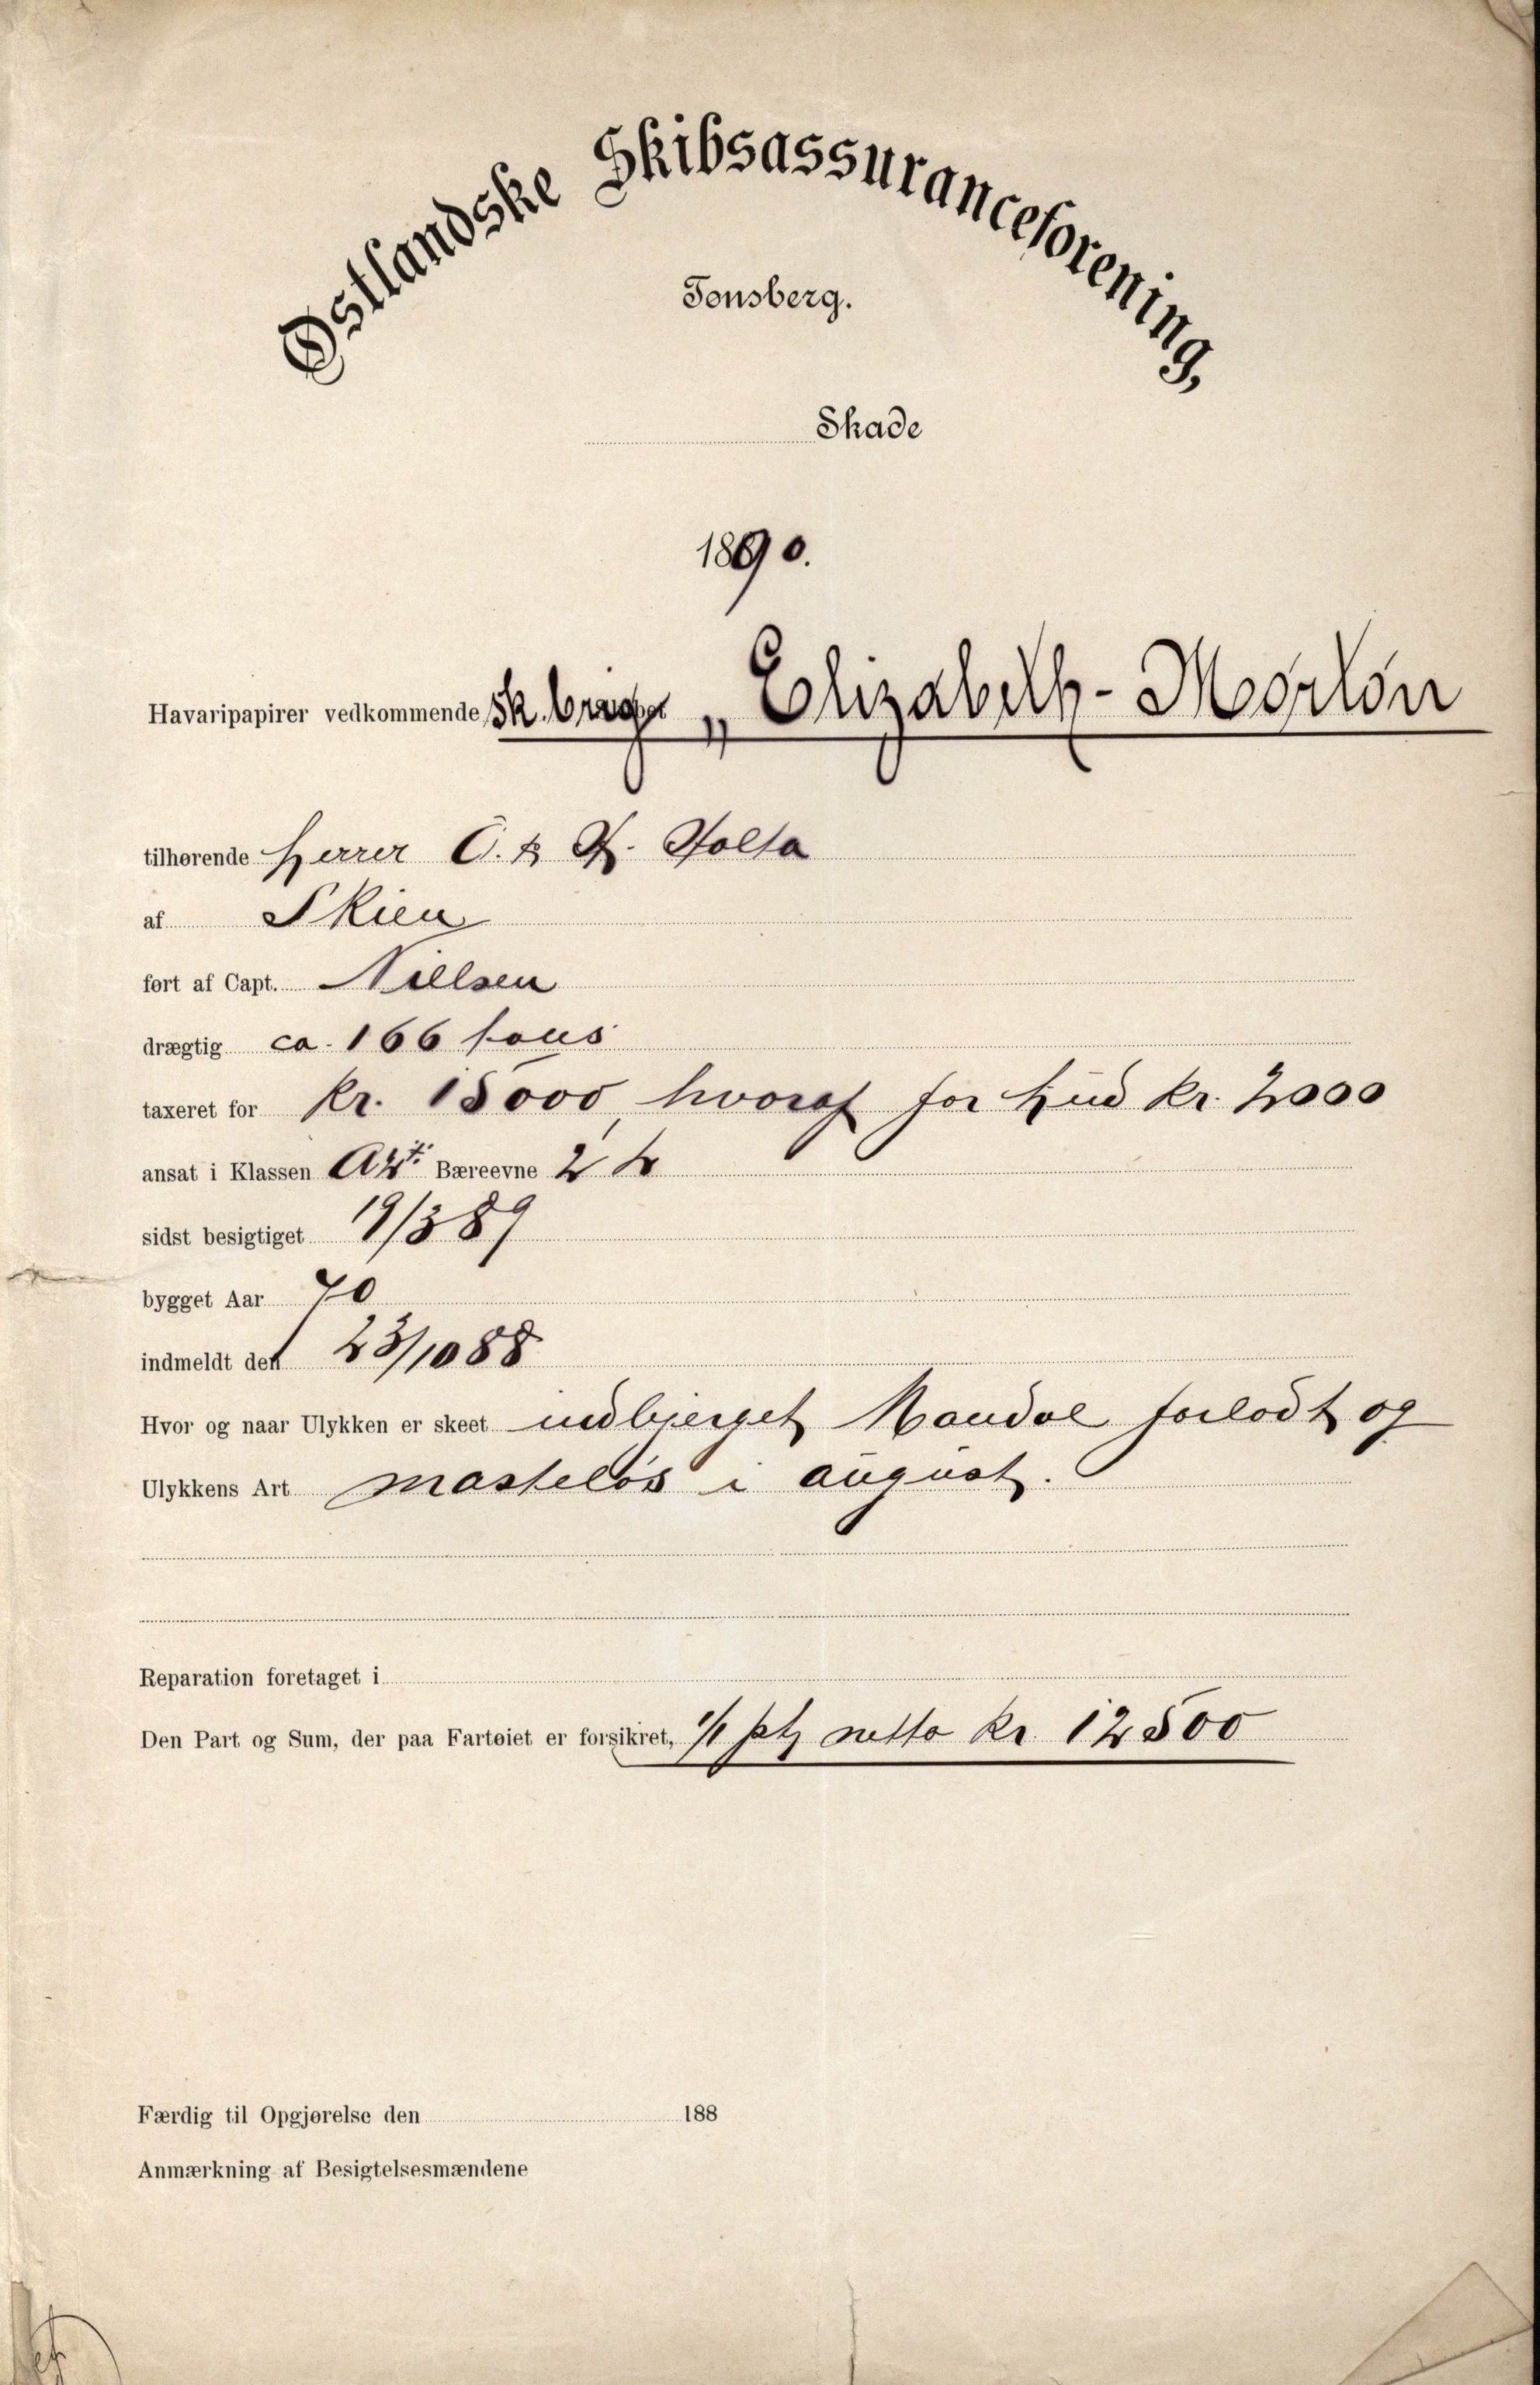 Østlandske Skibsassuranceforening,
Tønsberg.
Skade
1890.
Havaripapirer vedkommende Sk. brig „Elizabeth-Morton
tilhørende Herrer O. & H. Holta
af Skien
ført af Capt. Nielsen
drægtig ca. 166 tons
taxeret for kr. 15000, hvoraf for hud kr. 2000
ansat i Klassen A2 Bæreevne 2
sidst besigtiget 19/3 89
bygget Aar 70
indmeldt den 23/10 88
Hvor og naar Ulykken er skeet indbjerget Mandal forladt og
Ulykkens Art masteløs i august.
Reparation foretaget i
Den Part og Sum, der paa Fartøiet er forsikret, 1/1 pt netto kr. 12500
Færdig til Opgjørelse den 188
Anmærkning af Besigtelsesmændene